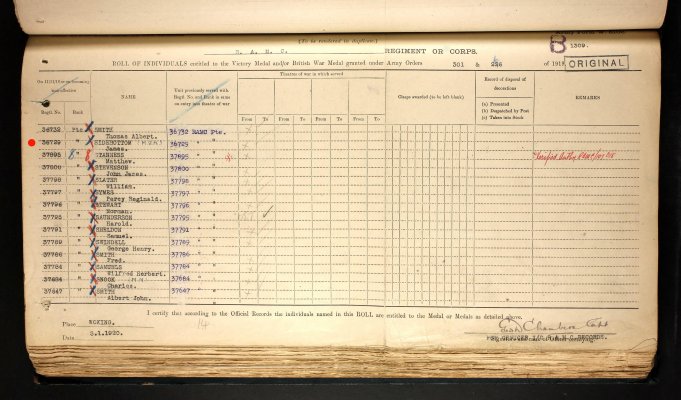 (To be rendered in duplicate.)
R. A. M. C. REGIMENT OR CORPS.
B
1309.
ROLL OF INDIVIDUALS entitled to the Victory Medal and/or British War Medal granted under Army Orders 301 & 266 of 1919. ORIGINAL
On 11/11/18 or on becoming non-effective
Regtl. No. Rank
NAME
Unit previously served with Regtl. No. and Rank in same on entry into theatre of war
Theatres of war in which served
From To From To From To From To From To
Clasps awarded (to be left blank)
Record of disposal of decorations
(a) Presented
(b) Despatched by Post
(c) Taken into Stock
REMARKS
36732 Pte. SMITH 36732 RAMC Pte.
Thomas Albert.
36729 " SIDEBOTTOM (M.M.) 36729 " "
James.
37895 STANNESS 37895 " "
Matthew.
37800 " STEVENSON 37800 " "
John James.
37798 " SLATER 37798 " "
William.
37797 " SYMES 37797 " "
Percy Reginald.
37796 " STEWART 37796 " "
Norman.
37795 " SAUNDERSON 37795 " "
Harold.
37791 " SHELDON 37791 " "
Samuel.
37789 " SWINDELL 37789 " "
George Henry.
37786 " SMITH 37786 " "
Fred.
37784 " SAMUELS 37784 " "
Wilfred Herbert.
37684 " SNOOK (M.M.) 37684 " "
Charles.
37647 " SMITH 37647 " "
Albert John.
I certify that according to the Official Records the individuals named in this ROLL are entitled to the Medal or Medals as detailed above.
Place WOKING. 14
Date 3.1.1920.
FOR OFFICER I/C R.A.M.C. RECORDS.